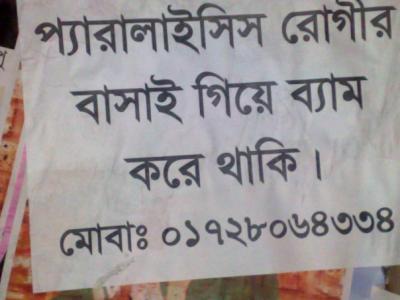 প্যারালাইসিস রোগীর
বাসাই গিয়ে ব্যাম
করে থাকি ।
মোবাঃ ০১৭২৮০৬৪৩৩৪